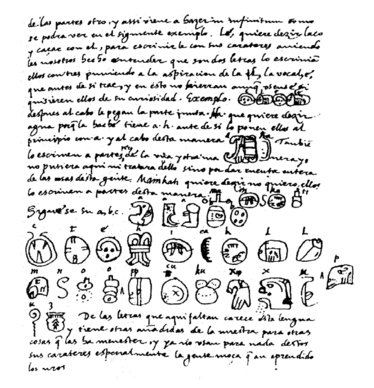 de las partes otro, y assi viene a hazer in infinitum como
se podra ver en el siguiente exemplo. Lé, quiere dezir laço
y caçar con el, para escrivirle con sus carateres aviendo
les nosotros hecho entender que son dos letras lo escrivian
ellos con tres puniendo a la aspiracion de la l, la vocal, é,
que antes de si trae, y en esto no hierran aunq̃ usense, si
quisieren ellos de su curiosidad. Exemplo.
despues al cabo le pegan la parte junta. Ha que quiere dezir
agua porq̃ la haché tiene a. h. ante de si lo ponen ellos al
principio con a. y al cabo desta manera ha Tambiē
lo escriven a partes, de la una y otra ma nera y
no pusiera aqui ni tratara dello sino por dar cuenta entera
de las cosas desta gente. Mainkati quiere dezir no quiero, ellos
lo escriven a partes desta manera
Siguese su a, b, c. a a a b b
c t é h i ca k l l
m n o o pp p cu ku x x u
u z De las letras que aqui faltan carece esta lengua
y tiene otras añadidas de la nuestra para otras
cosas q̃ las ha menester, y ya no usan para nada destos
sus carateres especialmente la gente moça q̃ an aprendido
los nros